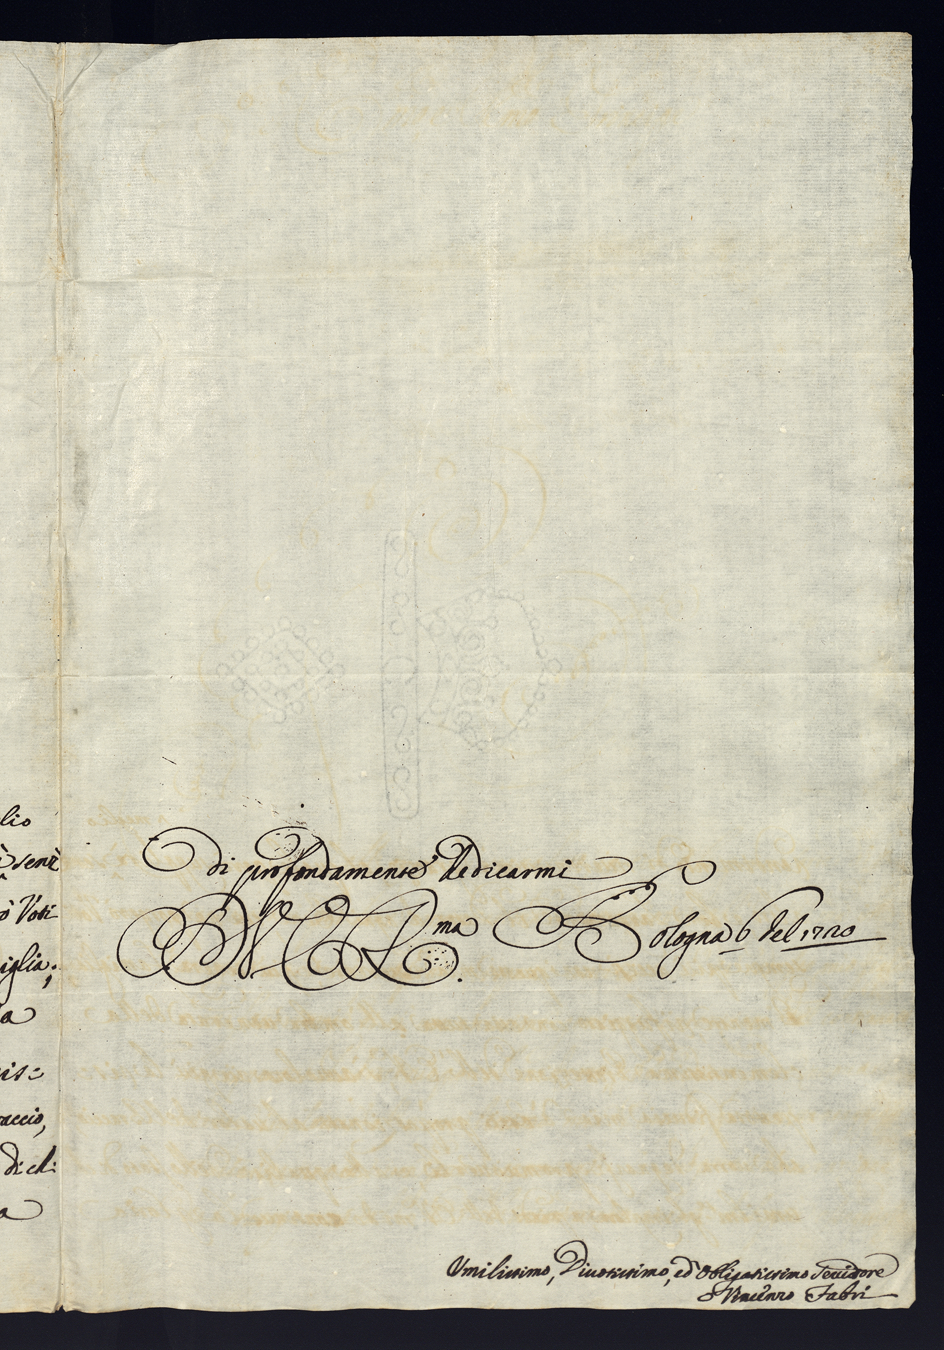 lio
Voti
iglia;
a
is=
accio,
di chi
a
di profondamente dedicarmi
D V E Rma Bologna 6 del 1720
Umilissimo, Divotissimo, ed Obligatissimo Servidore
Vincenzo Fabri